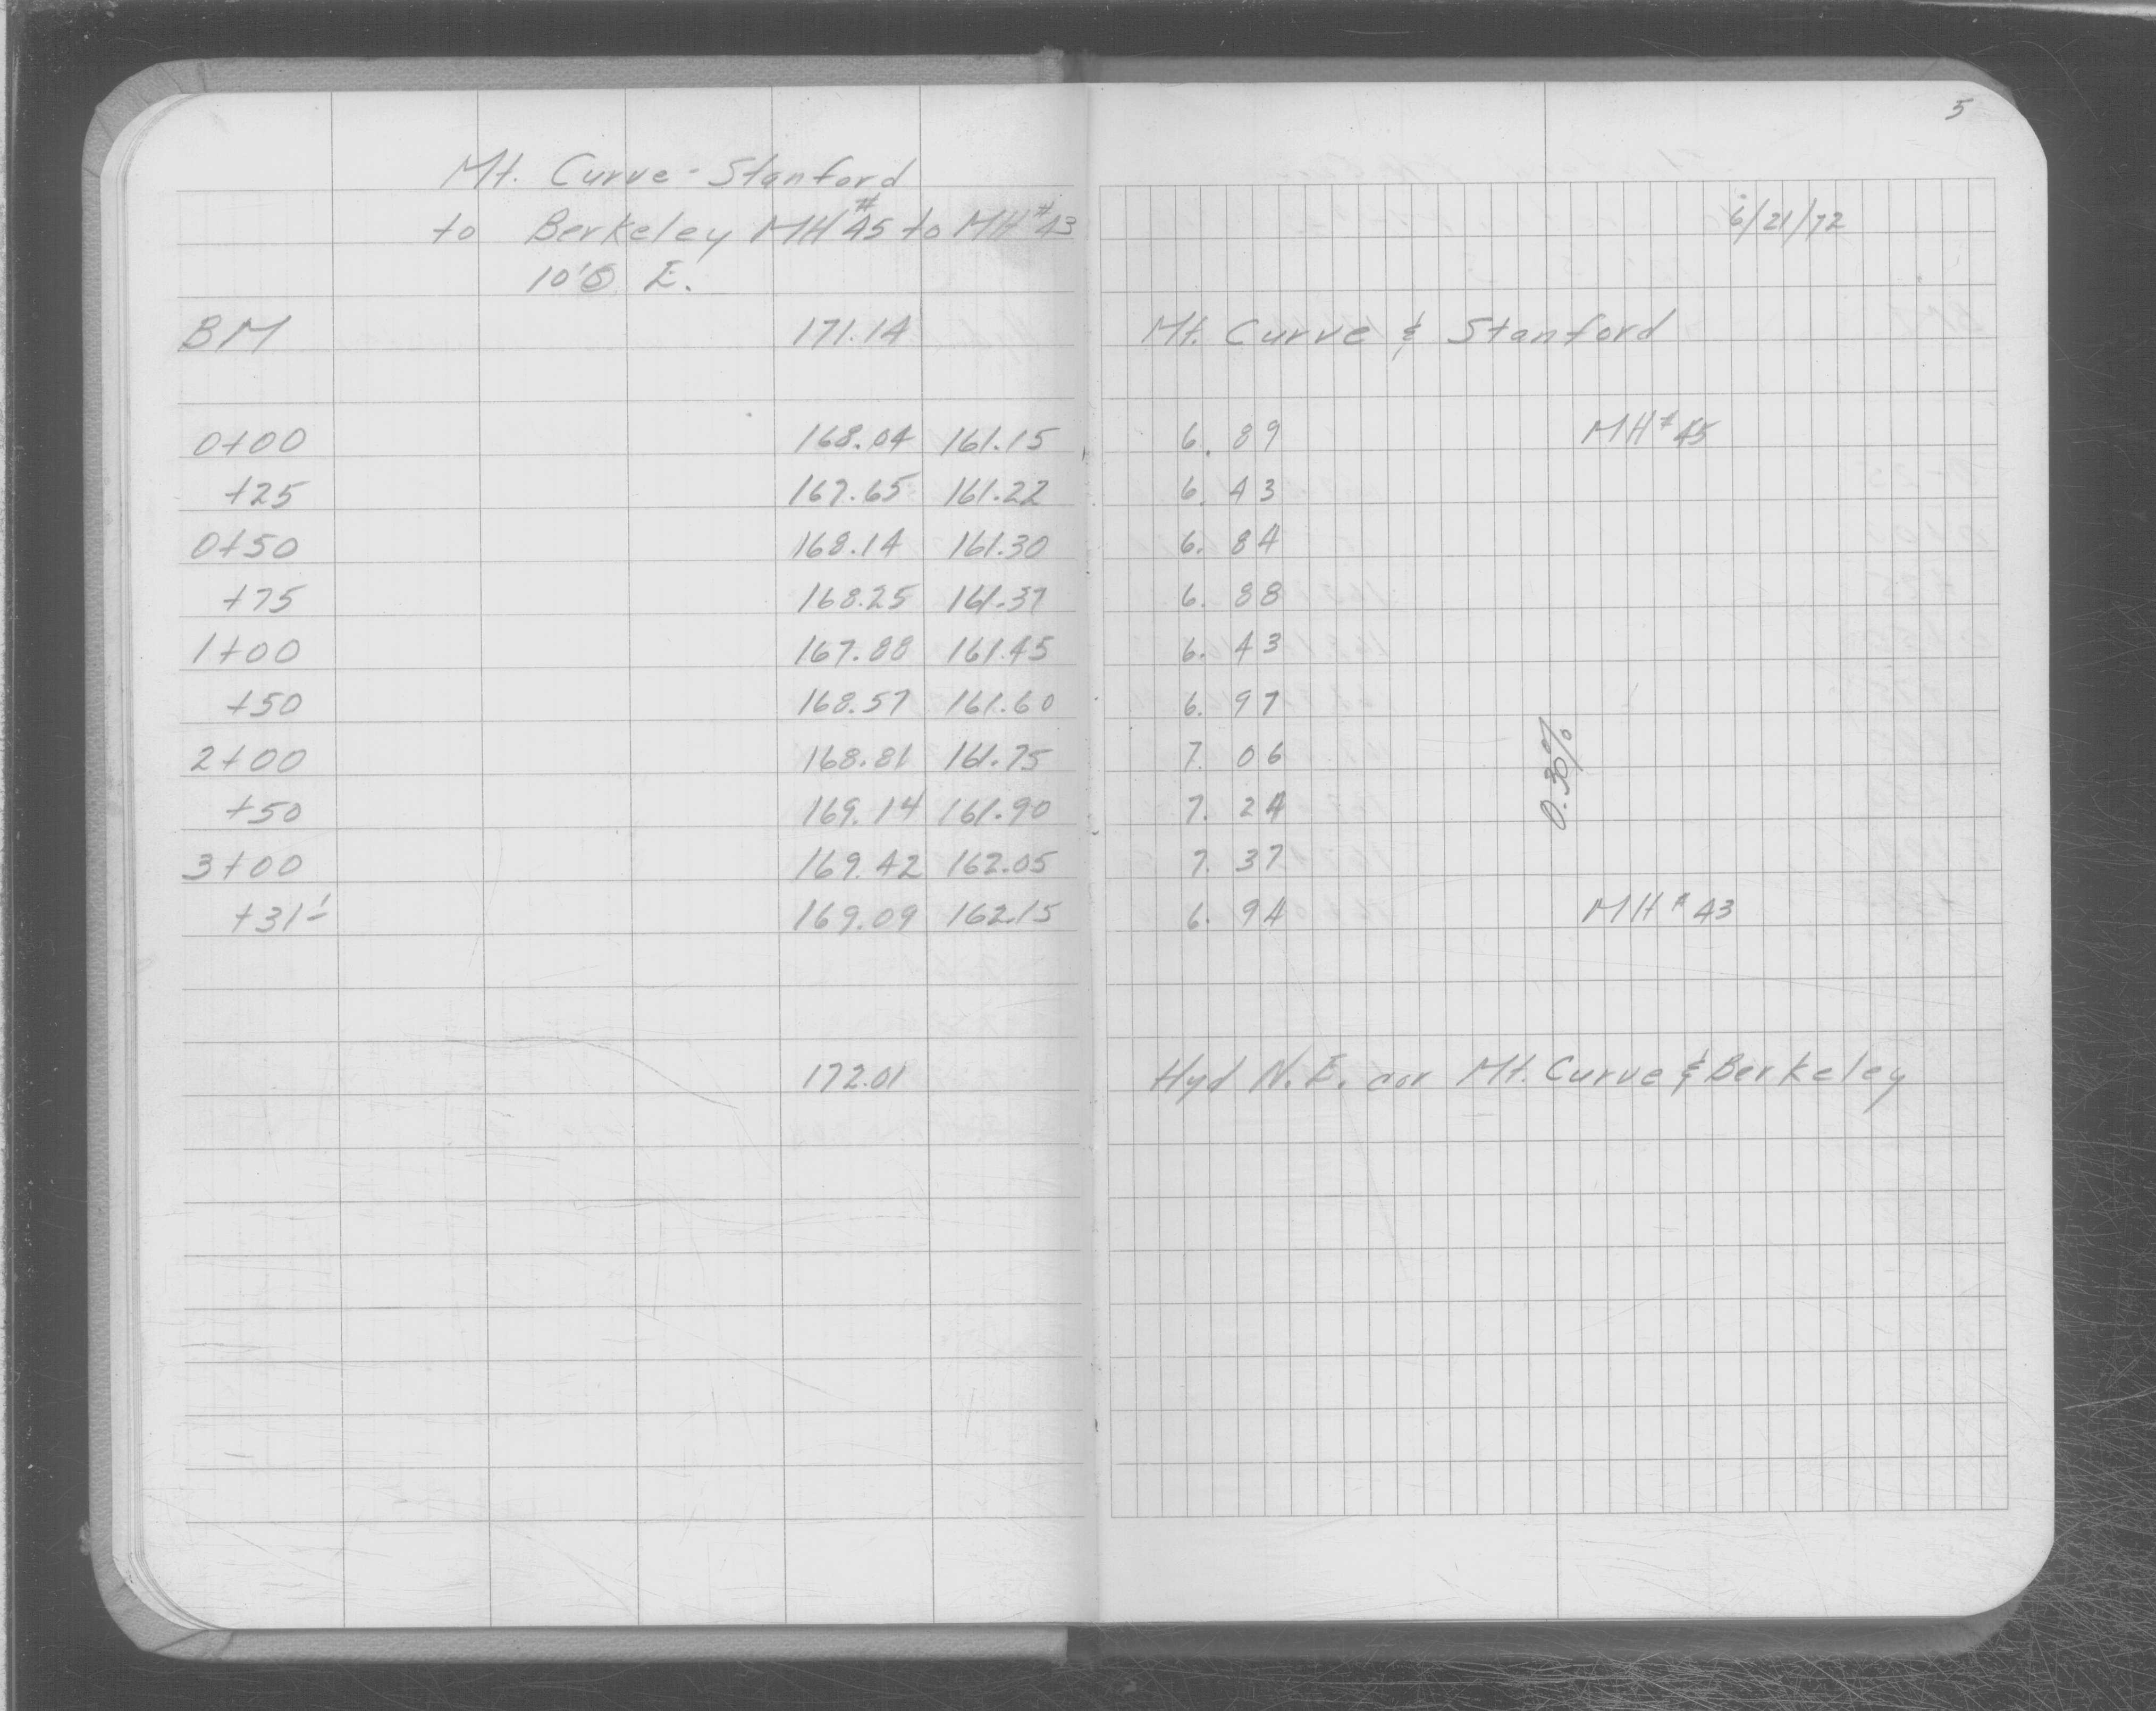 5
Mt. Curve - Stanford
to Berkeley MH #45 to MH #43
6/21/72
10' E.
BM 171.14 Mt. Curve & Stanford
0+00 168.04 161.15 6.89 MH #45
+25 167.65 161.22 6.43
0+50 168.14 161.30 6.84
+75 168.25 161.37 6.88
1+00 167.88 161.45 6.43
+50 168.57 161.60 6.97
2+00 168.81 161.75 7.06
0.30%
+50 169.14 161.90 7.24
3+00 169.42 162.05 7.37
+31 169.09 162.15 6.94 MH #43
172.01 Hyd N.E. cor Mt. Curve & Berkeley